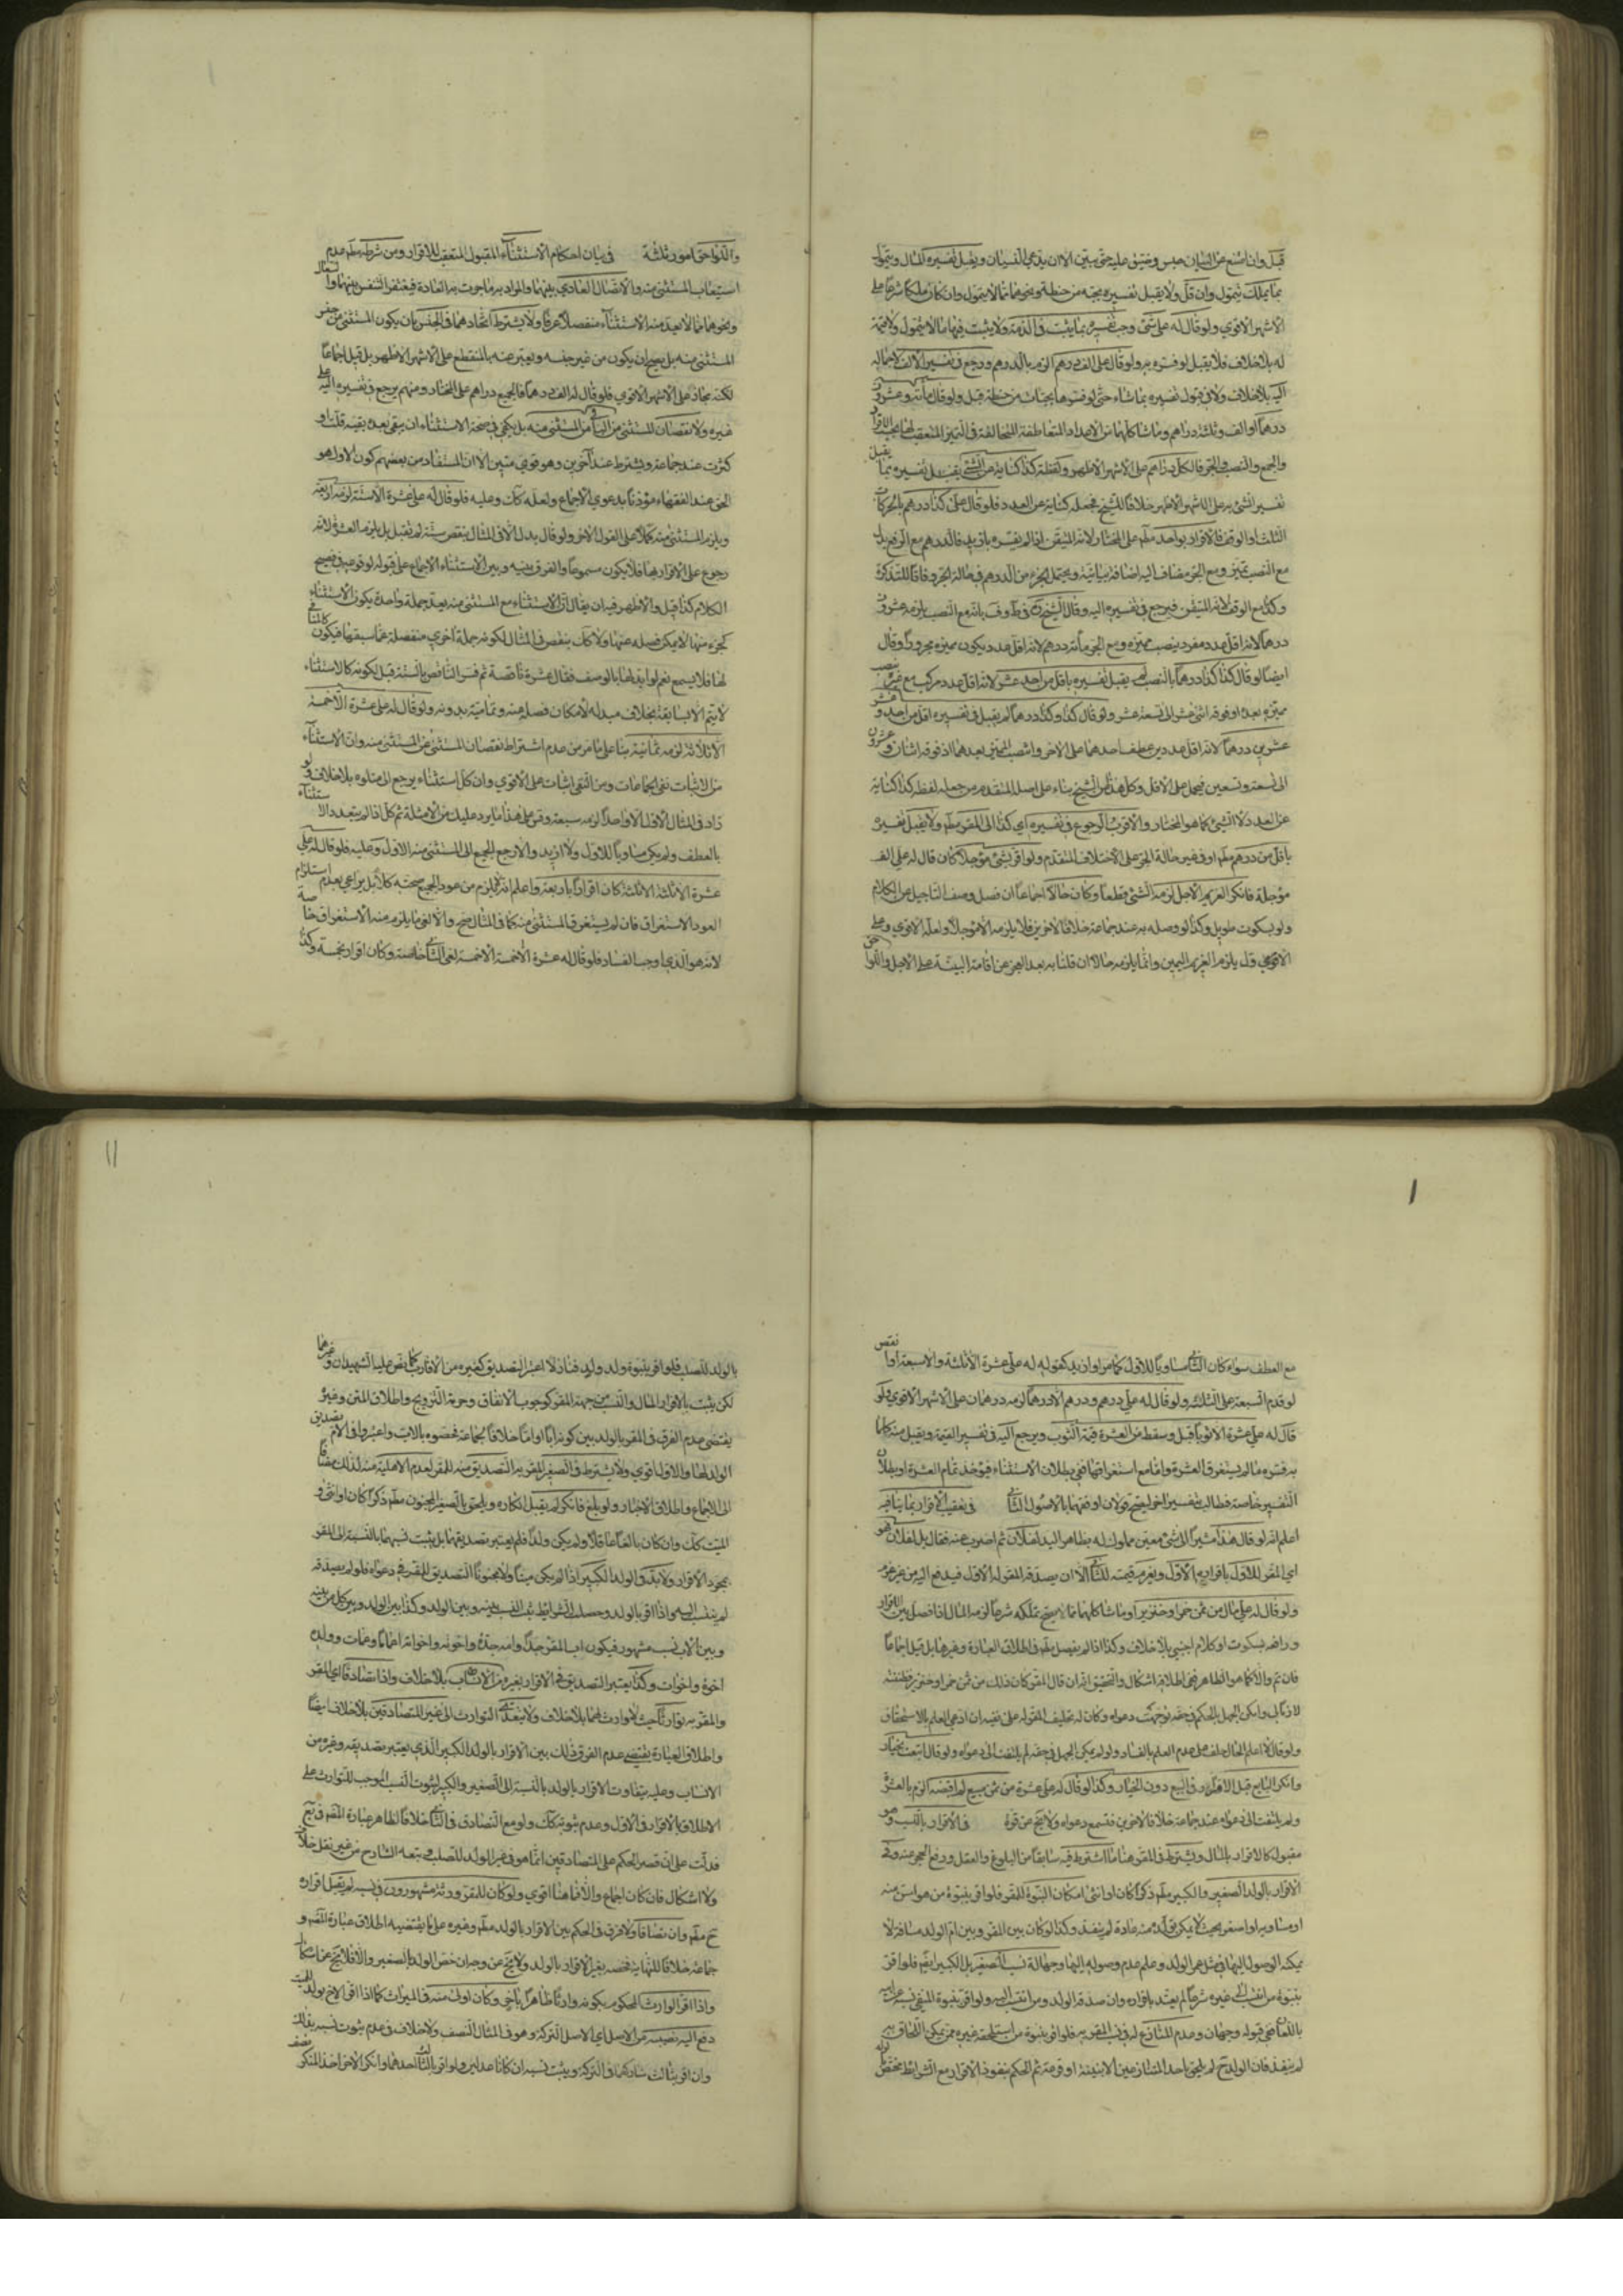 قبل وان امتنع عن البيان حبس وضيق عليه حتى يبين الا ان يدعي النسيان ويقبل تفسيره المال ويتمول
بما يملك يتمول وان قل ولا يقبل تفسيره بحبة من حنطة ونحوها مما لا يتمول وان كان ملكا شرعا على
الاشهر الاقوي ولو قال له على شئ وجب تفسيره بما يثبت في الذمة ولا يثبت فيها ما لا يتمول ولا قيمة
له بلا خلاف فلا يقبل لو فسره به ولو قال على الف ودرهم الزم بالدرهم ورجع في تفسير الالف لاجماله
اليه بلا خلاف ولا في قبول تفسيره بما شاء حتى لو فسرها بحبات من حنطة قبل ولو قال مائة وعشرون
درهما او الف وثلثة دراهم وما شاكلهما من الاعداد المتعاطفة المتخالفة في التميز المتعقب لها بحسب الافراد
والجمع والنصب والجر فالكل دراهم على الاشهر الاظهر ولفظة كذا كناية عن الشئ يقبل تفسيره بما يقبل
تفسير الشئ به على الاشهر الاظهر خلافا للشيخ فجعله كناية عن العدد فلو قال على كذا درهم بالحركات
الثلث او الوقف فالاقرار بواحد مطم على المختار لانه المتيقن اذا لم يفسره بازيد فالدرهم مع الرفع بدل
مع النصب تميز ومع الجر مضاف اليه اضافة بيانية ويحتمل الجزء من الدرهم في حالة الجر وفاقا للتذكرة
وكذا مع الوقف لانه المتيقن فيرجع في تفسيره اليه وقال الشيخ في ط وف بانه مع النصب يلزمه عشرون
درهما لانه اقل عدد مفرد ينصب مميزه ومع الجر مائة درهم لانه اقل عدد يكون مميزه مجرورا وقال
ايضا لو قال كذا كذا درهما بالنصب لم يقبل تفسيره باقل من احد عشر لانه اقل عدد مركب مع غيره ينصب
مميزه بعده اذ فوقه اثنى عشر الى تسعة عشر ولو قال كذا وكذا درهما لم يقبل في تفسيره اقل من احد وعشر
عشرين درهما لانه اقل عددين عطف احدهما على الاخر وانتصب المميز بعدهما اذ فوقه اثنان وعشرون
الى تسعة وتسعين فيحمل على الاقل وكل هذا من الشيخ بناء على اصله المتقدم من جعله لفظة كذا كناية
عن العدد لا الشئ كما هو المختار والاقرب الرجوع في تفسيره اي كذا الى المقر مطم ولا يقبل تفسيره
باقل من درهم مطم او في غير حالة الجر على الاختلاف المتقدم ولو اقر بشئ مؤجلا كان قال له على الف
مؤجلة فانكر الغريم الاجل لزمه الشئ قطعا وكان حالا اجماعا ان فصل وصف التاجيل عن الكلام
ولو بسكوت طويل وكذا لو وصله به عند جماعة خلافا لاخرين فلا يلزمه الا مؤجلا ولعله الاقوي وعلى
الاقوي قل يلزم الغريم اليمين وانما يلزمه حالا ان قلنا به بعد العجز عن اقامة البينة على الاجل واللواحق
واللواحق امور ثلثة في بيان احكام الاستثناء المقبول المتعقب للاقرار ومن شرطه مطم عدم
استيعاب المستثنى منه والاتصال العادي بينهما والمراد به ما جرت به العادة فيغتفر التنفس بينهما والسعال
ونحوهما مما لا يعد منه الاستثناء منفصلا عرفا ولا يشترط اتحادهما في الجنس بان يكون المستثنى من جنس
المستثنى منه بل يصح ان يكون من غير جنسه ويعبر عنه بالمنقطع على الاشهر الاظهر بل قيل اجماعا
لكنه مجاز على الاشهر الاقوي فلو قال له الف الا درهما فالجميع دراهم على المختار ومنهم يرجع في تفسيره اليه على
غيره ولا نقصان للمستثنى من الباقي من المستثنى منه بل يكفي في صحة الاستثناء ان يبقى بعده بقية قلت او
كثرت عند جماعة ويشترط عند آخرين وهو قوي متين الا ان المستفاد من بعضهم كون الاول هو
الحق عند الفقهاء مؤذنا بدعوي الاجماع ولعله كك وعليه فلو قال له على عشرة الا ستة لزمه اربعة
ويلزم المستثنى منه كملا على القول الاخر ولو قال بدل الا في المثال ينقص ستة لم يقبل بل يلزم العشرة لانه
رجوع على الاقرار بها فلا يكون مسموعا والفرق بينه وبين الاستثناء الاجماع على قبوله لوقوعه في فصيح
الكلام كذا قيل والاظهر فيه ان يقال ان الاستثناء مع المستثنى منه يعد جملة واحدة يكون الاستثناء
كجزء منها لا يمكن فصله عنها ولا كك ينقص في المثال لكونه جملة اخري منفصلة عما سبقها فيكون كالمنافي
لها فلا يسمع نعم لو ابدلها بالوصف فقال عشرة ناقصة ثم فسر الناقص بالستة قبل لكونه كالاستثناء
لا يتم الا بسابقه بخلاف مبدله لامكان فصله منه وتماميته بدونه ولو قال له على عشرة الا خمسة
الا ثلاثة لزمه ثمانية بنا على ما مر من عدم اشتراط نقصان المستثنى من المستثنى منه وان الاستثناء
من الاثبات نفي اجماعا ومن النفي اثبات على الاقوي وان كل استثناء يرجع الى متلوه بلا خلاف ولو
زاد في المثال الاول الا واحدا لزمه سبعة وقس على هذا ما يرد عليك من الامثلة ثم كل اذا لم يتعدد الاستثناء
بالعطف ولم يكن مساويا للاول ولا ازيد والا رجع الجميع الى المستثنى منه الاول وعليه فلو قال له على
عشرة الا ثلثة الا ثلثة كان اقرارا باربعة واعلم انه لم يلزم من عود الجميع صحته كلا بل يراعي بعدم استلزام
العود الاستغراق فان لم يستغرق المستثنى منه كما في المثال صح والا لغى ما يلزم منه الاستغراق خاصة
لانه هو الذي اوجب الفساد فلو قال له عشرة الا خمسة الا خمسة لغى الثاني خاصة وكان اقرار بخمسة وكذا
11
مع العطف سواء كان الثاني مساويا للاول كما مر او ازيد كقوله له على عشرة الا ثلثة والا سبعة او انقص
لو قدم السبعة على الثلثة ولو قال له على درهم ودرهم الا درهما لزمه درهمان على الاشهر الاقوي ولو
قال له على عشرة الا ثوبا قبل وسقط من العشرة قيمة الثوب ويرجع اليه في تفسير القيمة ويقبل منه كلما
به فسره ما لم يستغرق العشرة واما مع استغراقها ففي بطلان الاستثناء فيؤخذ تمام العشرة او بطلان
التفسير خاصة فطالب بتفسير اخر ليصح قولان اوفقهما بالاصول الثاني في تعقيب الاقرار بما ينافيه
اعلم انه لو قال هذا مشيرا الى شئ معين مملوك له بظاهر اليد لفلان ثم اضرب عنه فقال بل لفلان فهو
اي المقر للاول باقراره الاول ويغرم قيمته للثاني الا ان يصدقه المقر له الاول فيدفع اليه من غير غرم
ولو قال له على مال من ثمن خمر او خنزير او ما شاكلهما مما لا يصح تملكه شرعا لزمه المال اذا فصل بين الاقرار
ورافعه بسكوت او كلام اجنبي بلا خلاف وكذا اذا لم يفصل بهما في اطلاق العبارة وغيرها بل قيل اجماعا
فان تم والا كما هو الظاهر ففي اطلاقه اشكال والتحقيق انه ان قال المقر كان ذلك من ثمن خمر او خنزير فظننته
لازما لي وامكن الجهل بالحكم في حقه توجهت دعواه وكان له تحليف المقر له على نفيه ان ادعي العلم بالاستحقاق
ولو قال لا اعلم الحال حلف على عدم العلم بالفساد ولو لم يمكن الجهل في حقه لم يلتفت الى دعواه ولو قال ابتعت بخيار
وانكر البايع قبل الاقرار في البيع دون الخيار وكذا لو قال له على عشرة من ثمن مبيع لم اقبضه الزم بالعشرة
ولم يلتفت الى دعواه عند جماعة خلافا لاخرين فتسمع دعواه ولا يخ عن قوة في الاقرار بالنسب وهو
مقبول كالاقرار بالمال ويشترط في المقر هنا ما اشترط فيه سابقا من البلوغ والعقل ورفع الحجر عنه وفي
الاقرار بالولد الصغير والكبير مطم ذكرا كان او انثى امكان البنوة للمقر فلو اقر ببنوة من هو اسن منه
او مساويه او اصغر بحيث لا يمكن تولده منه عادة لم ينفذ وكذا لو كان بين المقر وبين ام الولد مسافة لا
يمكنه الوصول اليها في مثل عمر الولد وعلم عدم وصوله اليها وجهالة نسب الصغير بل الكبير ايضم فلو اقر
ببنوة من انتسب الى غيره شرعا لم يعتد باقراره وان صدقه الولد ومن انتسب اليه ولو اقر ببنوة المنفي نسبه عن ابيه
باللعان ففي قبوله وجهان وعدم المنازع له في نسب المقر به فلو اقر ببنوة من استلحقه غيره ممن يمكن التحاقه به
لم ينفذ فان الولد ح لم يلحق باحد المتنازعين الا ببينة او قرعة ثم الحكم بنفوذ الاقرار مع الشرائط مختص
بالولد للصلب فلو اقر ببنوة ولد ولده فنازلا اعتبر التصديق كغيره من الاقارب كما نص عليه الشهيدان وغيرهما
لكن يثبت بالاقرار المال والنسب من جهة المقر كوجوب الانفاق وحرمة التزويج واطلاق المتن وغيره
يقتضى عدم الفرق في المقر بالولد بين كونه ابا او اما خلافا لجماعة فخصوه بالاب واعتبروا في الام تصديق
الولد لها والاول اقوي ولا يشترط في الصغير المقر به التصديق منه للمقر لعدم الاهلية منه لذلك مضافا
الى الاجماع واطلاق الاخبار ولو بلغ فانكر لم يقبل انكاره ويلحق بالصغير المجنون مطم ذكرا كان او انثى و
الميت كك وان كان بالغا عاقلا ولم يكن ولدا فلم يعتبر تصديقهما بل يثبت نسبهما بالنسبة الى المقر
بمجرد الاقرار ولا بد في الولد الكبير اذا لم يكن ميتا ولا مجنونا التصديق للمقر في دعواه فلو لم يصدقه
لم يثبت النسب واذا اقر بالولد وحصلت الشرائط ثبت النسب بينه وبين الولد وكذا بين الولد وبين كل من بينه
وبين الاب نسب مشهور فيكون اب المقر جدا وامه جدة واخوته واخواته اعماما وعمات وولده
اخوة واخوات وكذا يعتبر التصديق في الاقرار بغيره من الانساب بلا خلاف واذا تصادقا اي المقر
والمقر به توارثا حيث لا وارث لهما بلا خلاف ولا يتعدي التوارث الى غير المتصادقين بلا خلاف ايضا
واطلاق العبارة يقتضي عدم الفرق في ذلك بين الاقرار بالولد الكبير الذي يعتبر تصديقه وغيره من
الانساب وعليه يتفاوت الاقرار بالولد بالنسبة الى الصغير والكبير بثبوت النسب الموجب للتوارث على
الاطلاق بالاقرار في الاول وعدم ثبوته كك ولو مع التصادق في الثاني خلافا لظاهر عبارة الماتن في يع
فدلت على ان قصر الحكم على المتصادقين انما هو في غير الولد للصلب وتبعه الشارح من غير نقل خلاف
ولا اشكال فان كان اجماع والا فما هنا اقوي ولو كان للمقر ورثة مشهورون في نسبه لم يقبل اقراره
ح مطم وان تصادقا ولا فرق في الحكم بين الاقرار بالولد مطم وغيره على ما يقتضيه اطلاق عبارة الماتن و
جماعة خلافا للنهاية فخصه بغير الاقرار بالولد ولا يخ عن وجه ان خص الولد بالصغير والا فلا يخ عن اشكال
واذا اقر الوارث المحكوم بكونه وارثا ظاهرا باخر وكان اولى منه في الميراث كما اذا اقر الاخ بولد للميت
دفع اليه نصيبه من الاصل اي الاصل التركة وهو في المثال النصف ولا خلاف في عدم ثبوت نسبه بذلك
وان اقر بثالث شاركهما في التركة ويثبت نسبه ان كانا عدلين ولو اقر بالثالث احدهما وانكر الاخر اخذ المنكر نصف